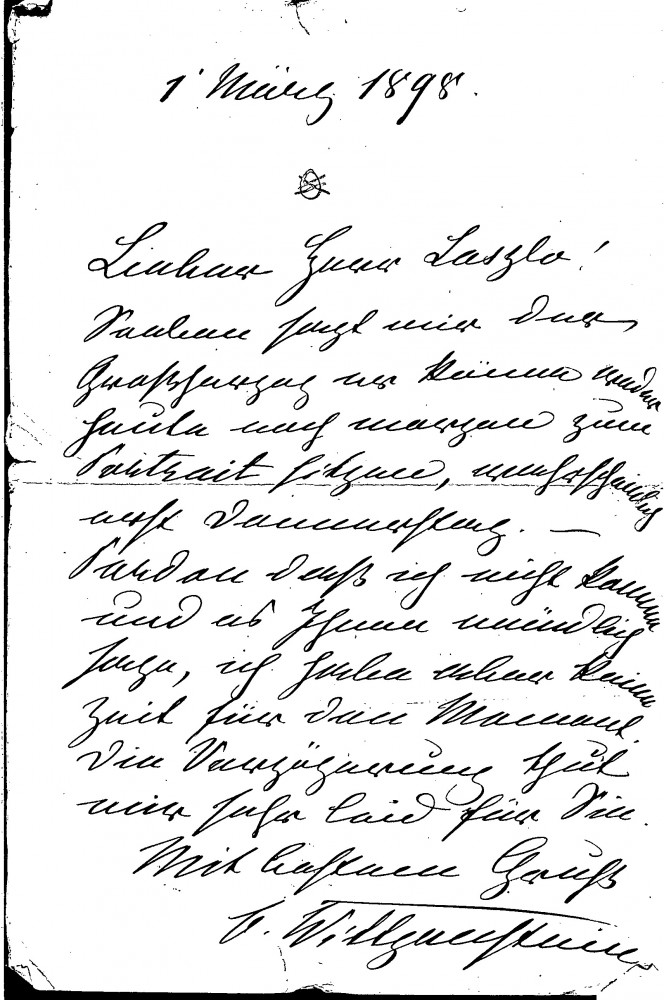 1' März 1898.
Lieber Herr Laszlo!
Soeben sagt mir der
Großherzog er könne weder
heute noch morgen zum
Portrait sitzen, wahrscheinlich
erst Donnerstag. —
Pardon daß ich nicht komme
und es Ihnen mündlich
sage, ich habe aber keine
Zeit für den Moment.
Die Verzögerung thut
mir sehr leid für Sie.
Mit bestem Gruß
Wittgenstein